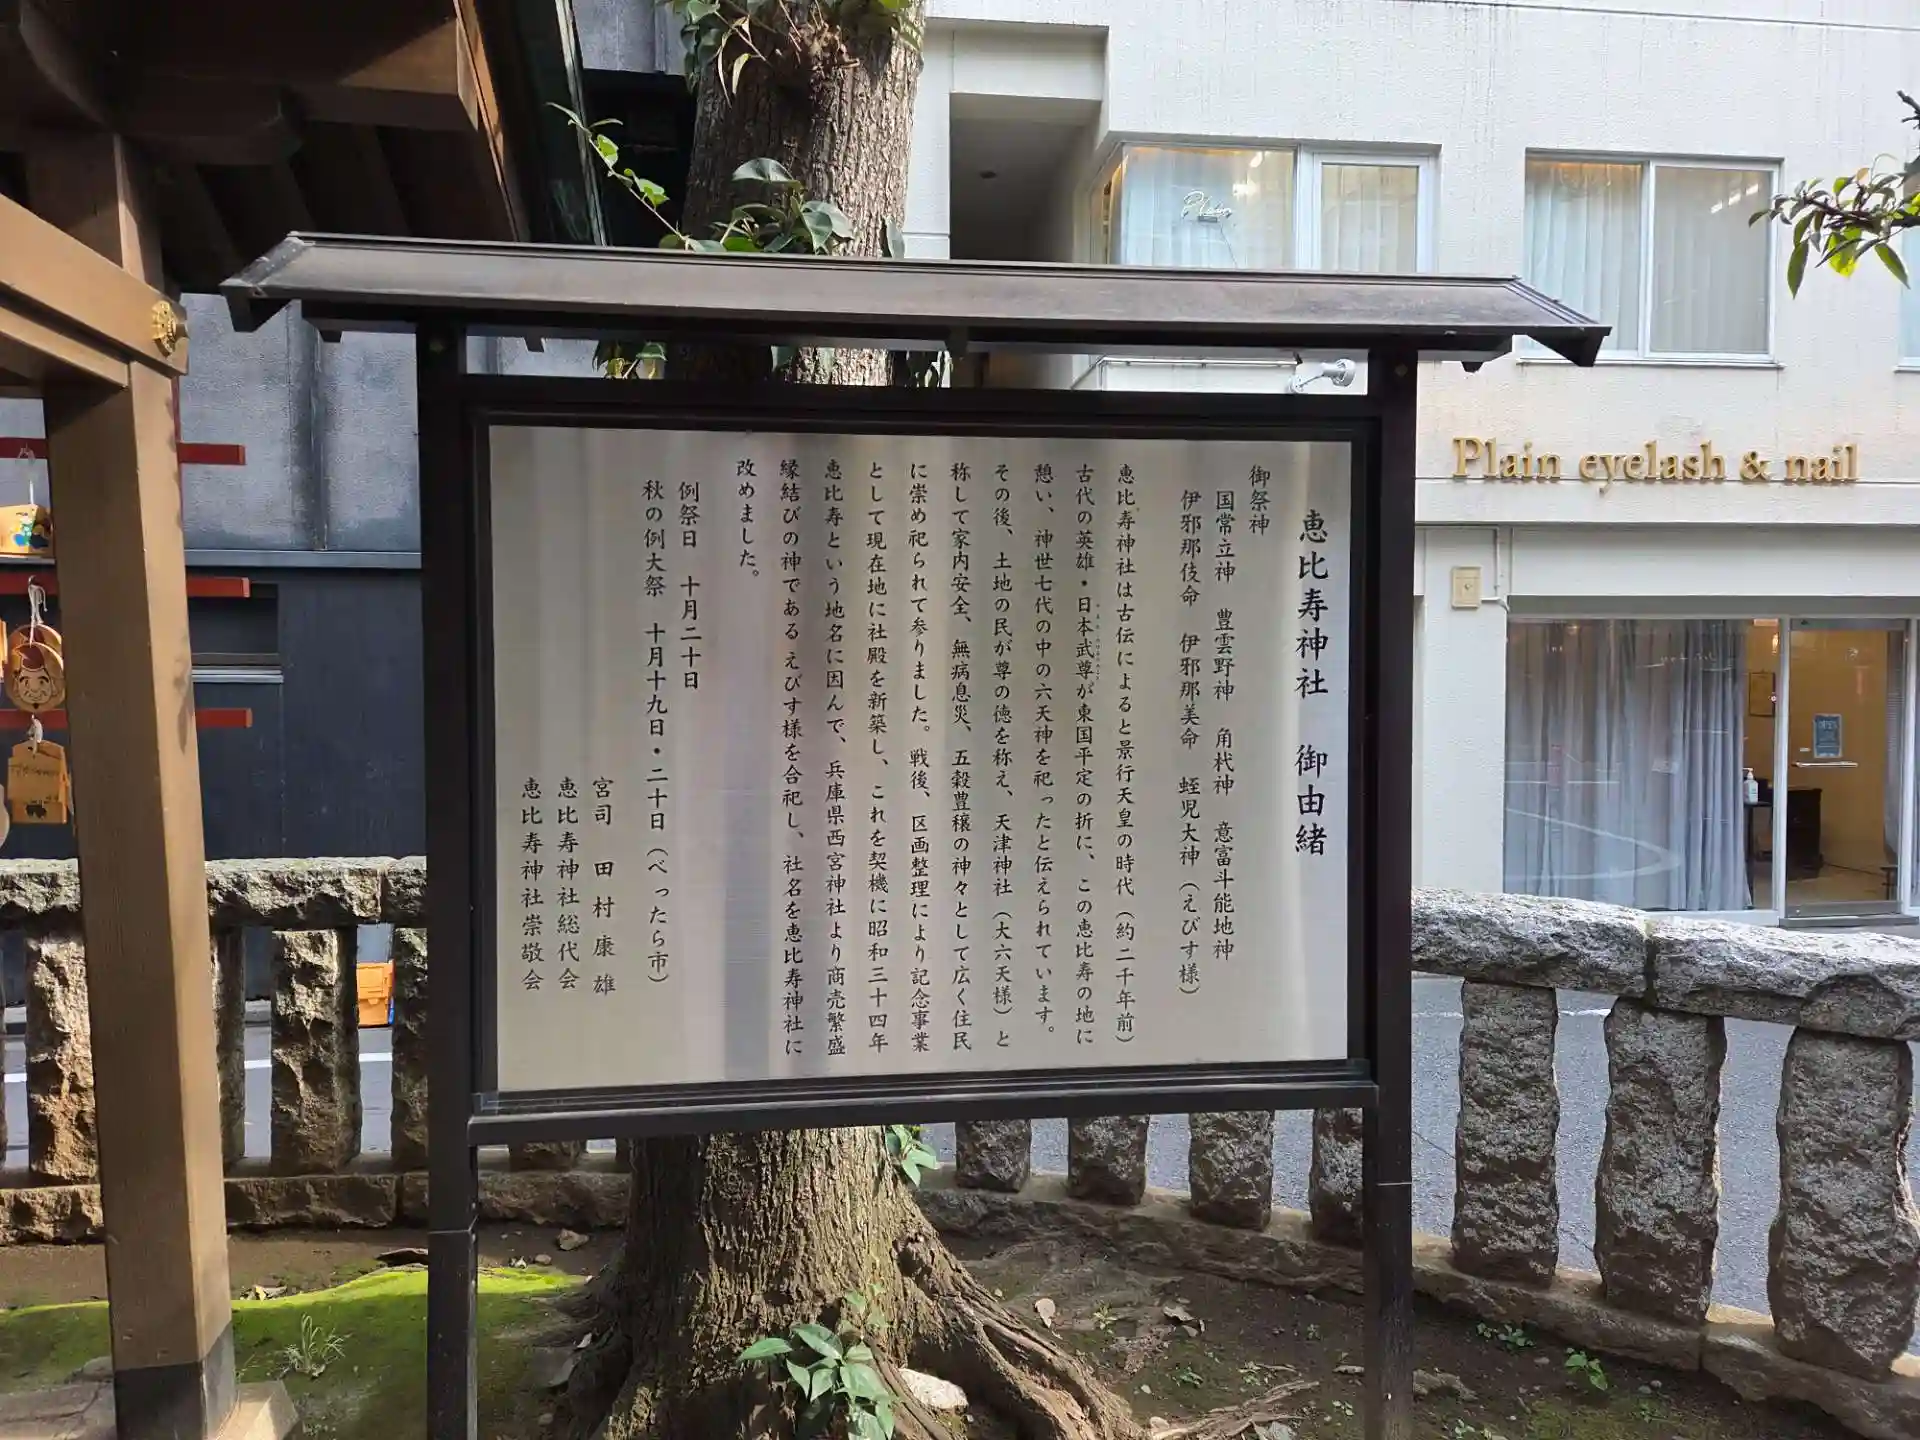 恵比寿神社 御由緒
御祭神
国常立神 豊雲野神 角杙神 意富斗能地神
伊邪那伎命 伊邪那美命 蛭児大神(えびす様)
恵比寿神社は古伝によると景行天皇の時代(約二千年前)
古代の英雄・日本武尊が東国平定の折に、この恵比寿の地に
憩い、神世七代の中の六天神を祀ったと伝えられています。
その後、土地の民が尊の徳を称え、天津神社(大六天様)と
称して家内安全、無病息災、五穀豊穣の神々として広く住民
に崇め祀られて参りました。戦後、区画整理により記念事業
として現在地に社殿を新築し、これを契機に昭和三十四年
恵比寿という地名に因んで、兵庫県西宮神社より商売繁盛
縁結びの神である えびす様を合祀し、社名を恵比寿神社に
改めました。
例祭日 十月二十日
秋の例大祭 十月十九日・二十日(べったら市)
宮司 田村康雄
恵比寿神社総代会
恵比寿神社崇敬会
Plain
Plain eyelash & nail